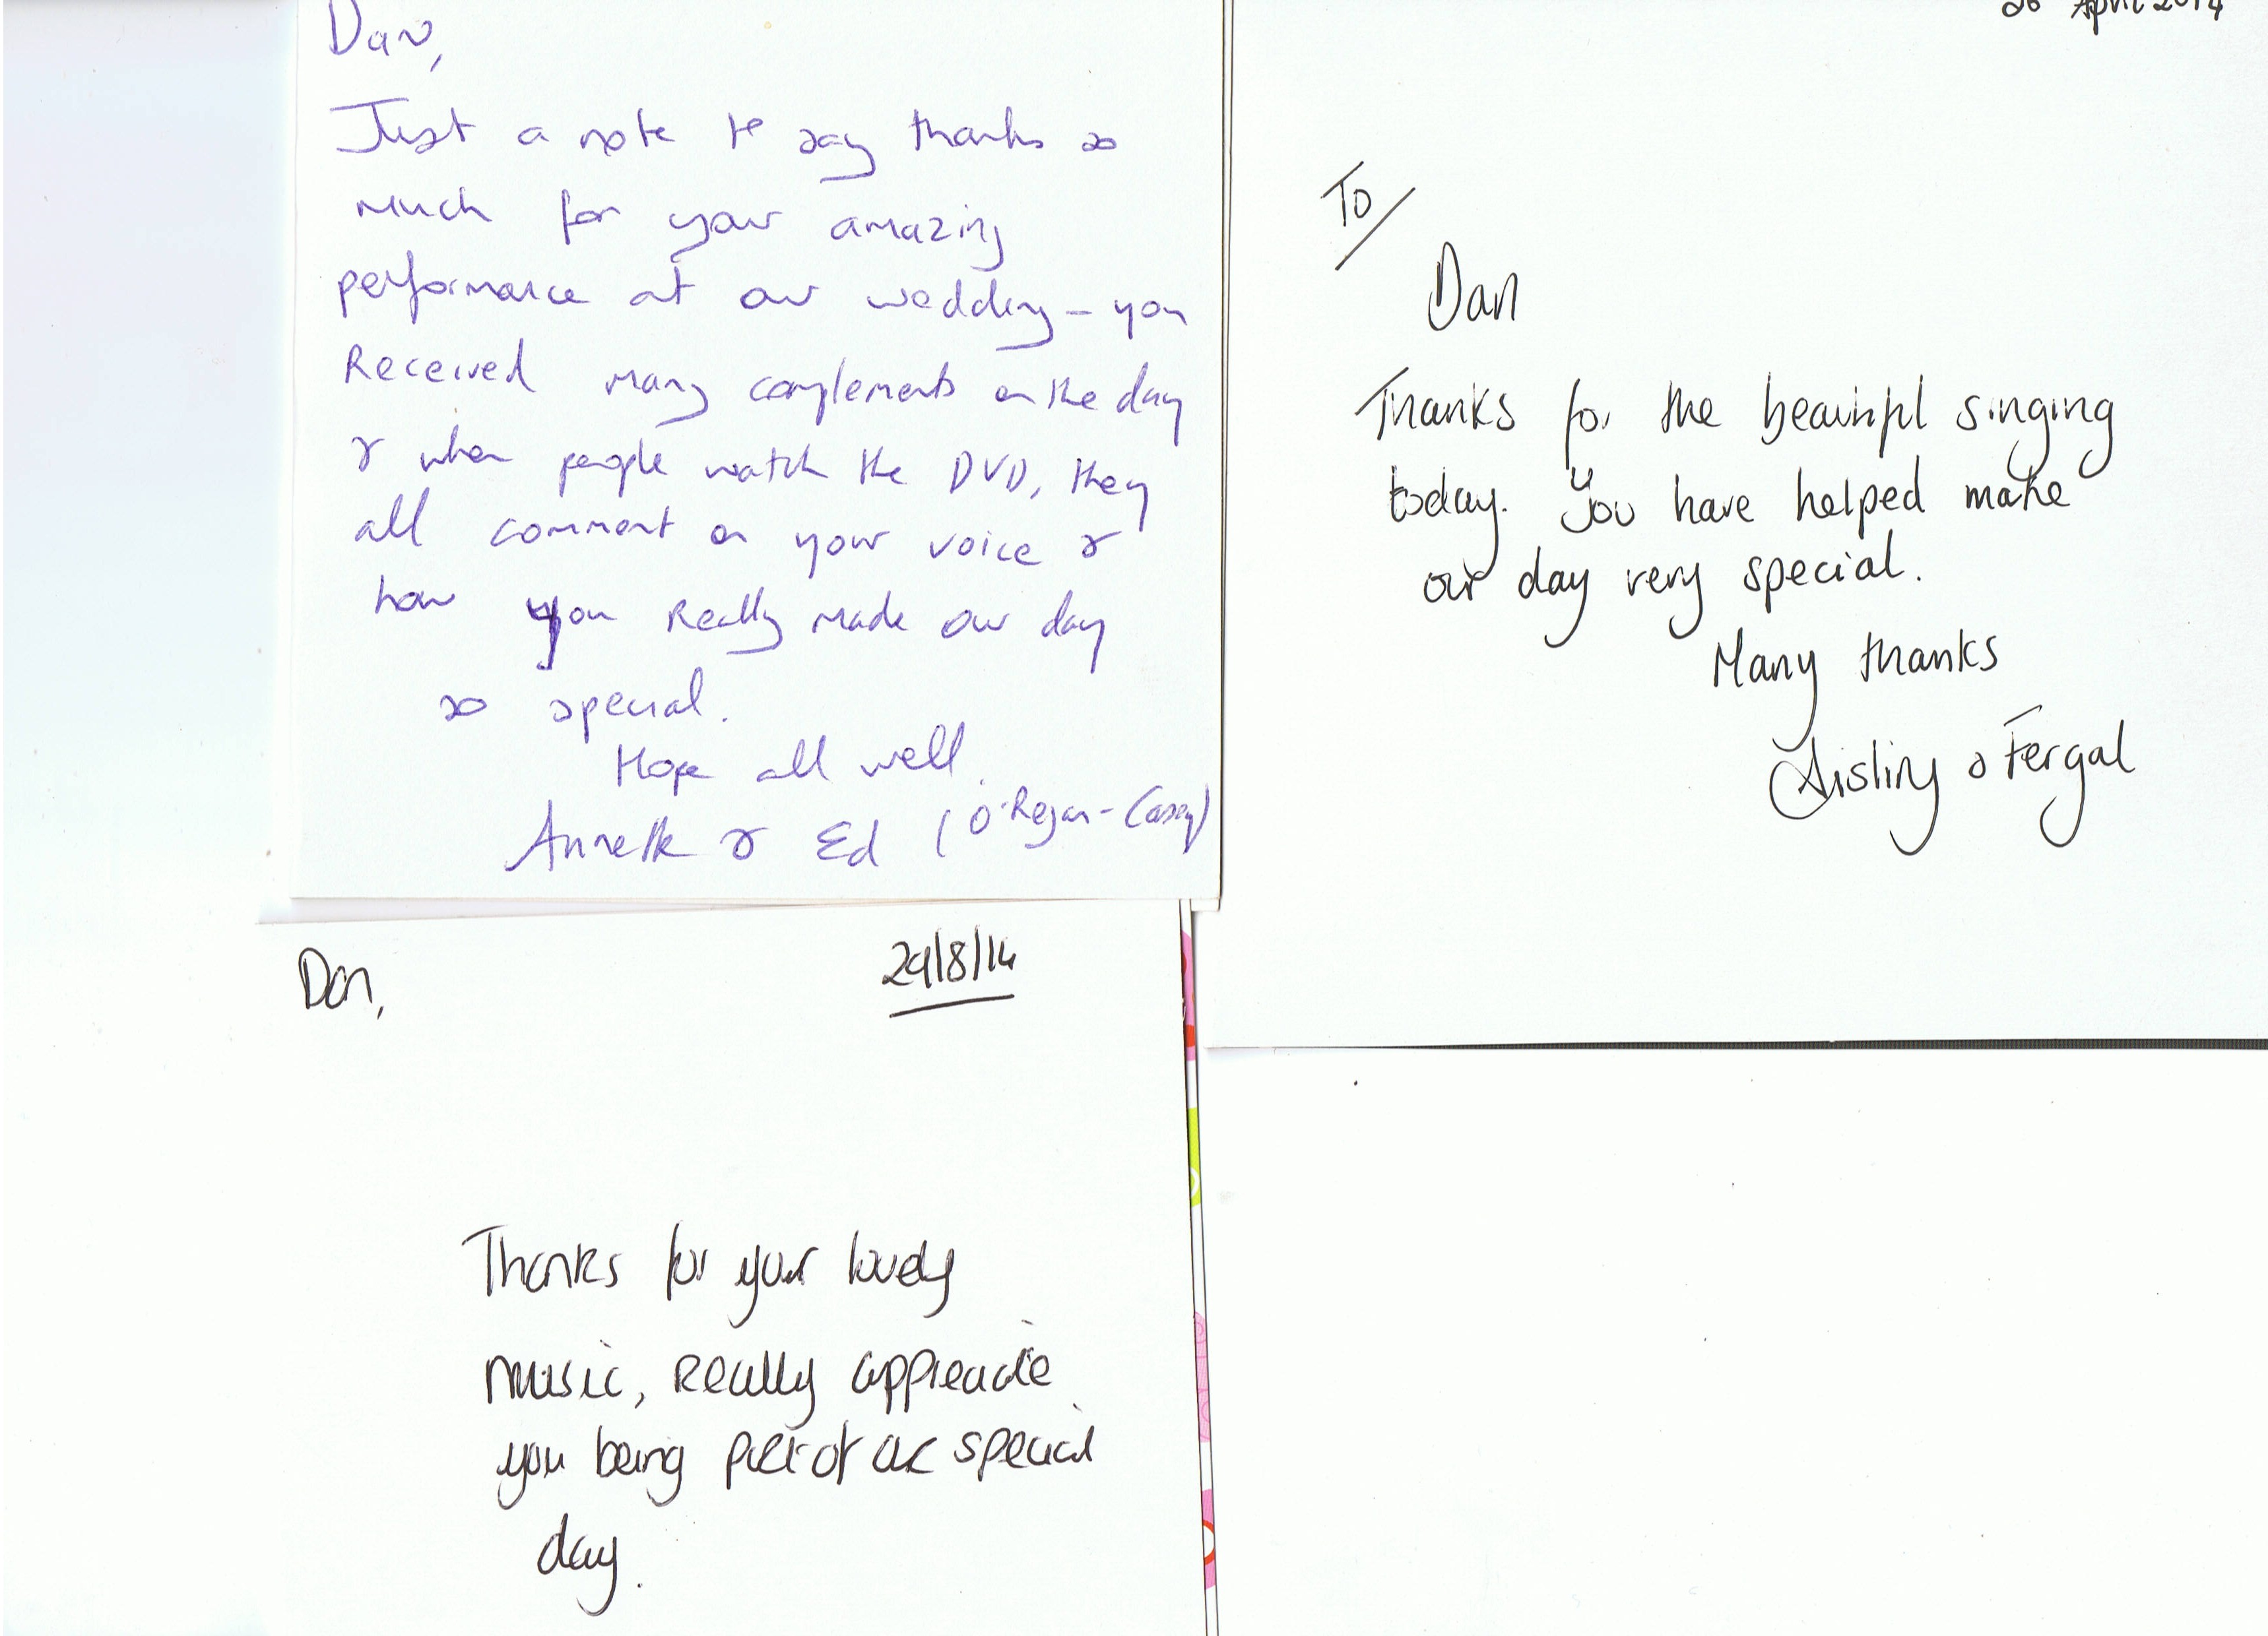 Dan,
Just a note to say thanks so
much for your amazing
performance at our wedding - you
Received many complements on the day
& when people watch the DVD, they
all comment on your voice &
how you Really made our day
so special.
Hope all well.
Annette & Ed (O'Regan-Casey)
26 April 2014
To
Dan
Thanks for the beautiful singing
today. You have helped make
our day very special.
Many thanks
Aisling & Fergal
Dan,
29/8/14
Thanks for your lovely
music, Really appreciate
you being part of our special
day.